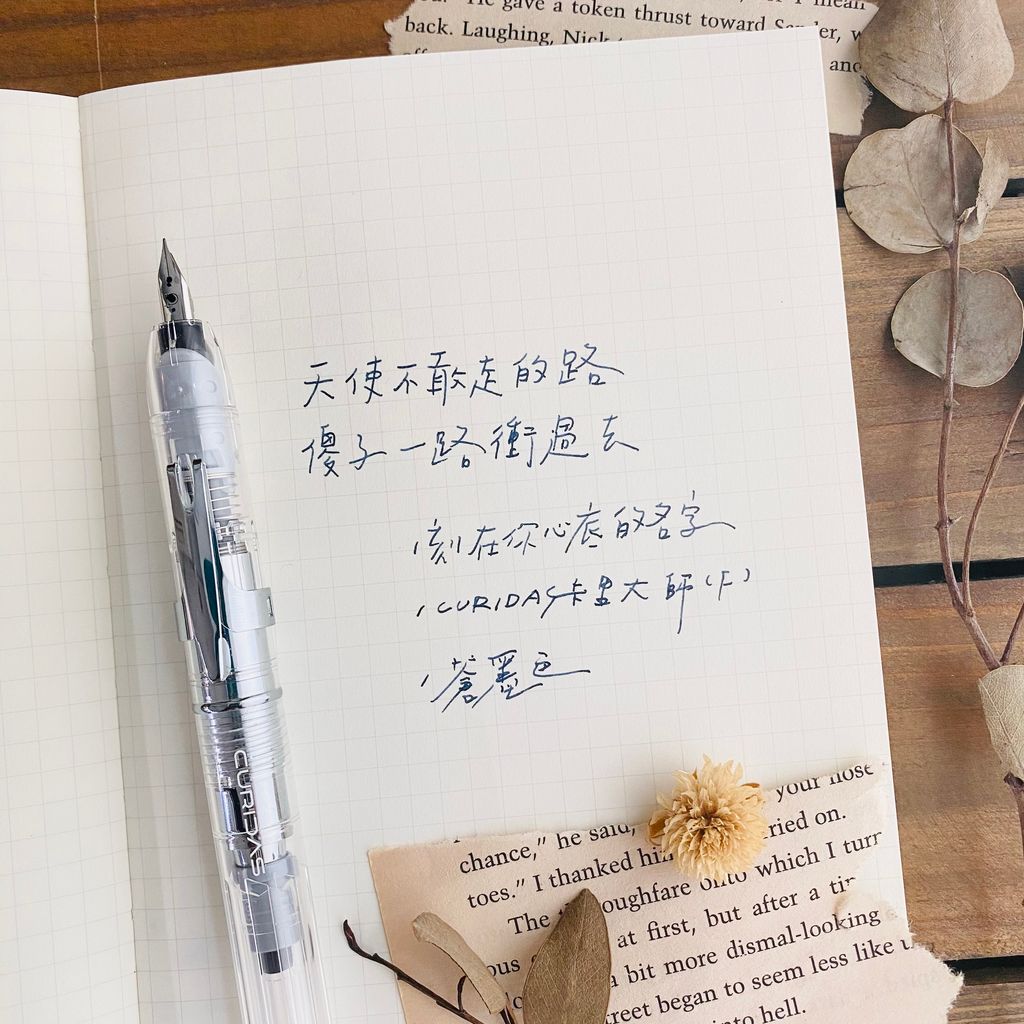 He gave a token thrust toward
back. Laughing, Nick
and
天使不敢走的路
傻子一路衝過去
/刻在你心底的名字
/CURIDAS卡里大師(F)
/蒼墨色
CURIDAS
your nose
chance," he said,
ried on.
toes." I thanked hi
The
oughfare onto which I turn
at first, but after a tin
ous
a bit more dismal-looking
treet began to seem less like
into hell.